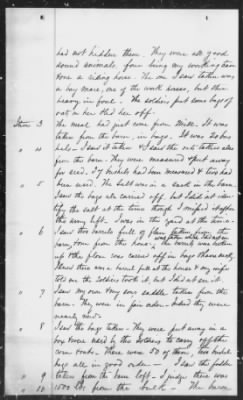 had not hidden them. They were all good
sound animals, four being my working team
& one a riding horse. The one I saw taken was
a bay mare, one of the work horses, but then
heavy in foal. The soldiers put some bags of
oats on her & led her off.
Item 3 The meal had just come from Mill. It was
taken from the barn, in bags. It was 20 bus
hels - I saw it taken
" 4 & I saw the oats taken also
from the barn. They were measured & put away
for seed. 57 bushels had been measured & two had
been used.
" 5 The salt was in a sack in the barn.
I saw the bags all carried off, but I did not iden-
tify the salt at the time though I missed it after
the army left. I was in the yard at the time.
" 6 I saw two barrels full of flour taken from the
barn, from the house, the barrels was broken
up & the flour was carried off in bags.
There was a barrel full at the house & my wife
told me the soldiers took it, but I did not see it.
" 7 I saw my own & my sons saddle taken from the
barn. They were in fair order. Indeed they were
nearly new.
" 8 I saw the bags taken. They were put away in a
box & were used by the soldiers to carry off the
corn & oats. There were 50 of them, two bushel
bags all in good order.
" 9 I saw this fodder
taken from the barn loft. I judge there was
" 10 1500 lbs from the bulk. The bacon